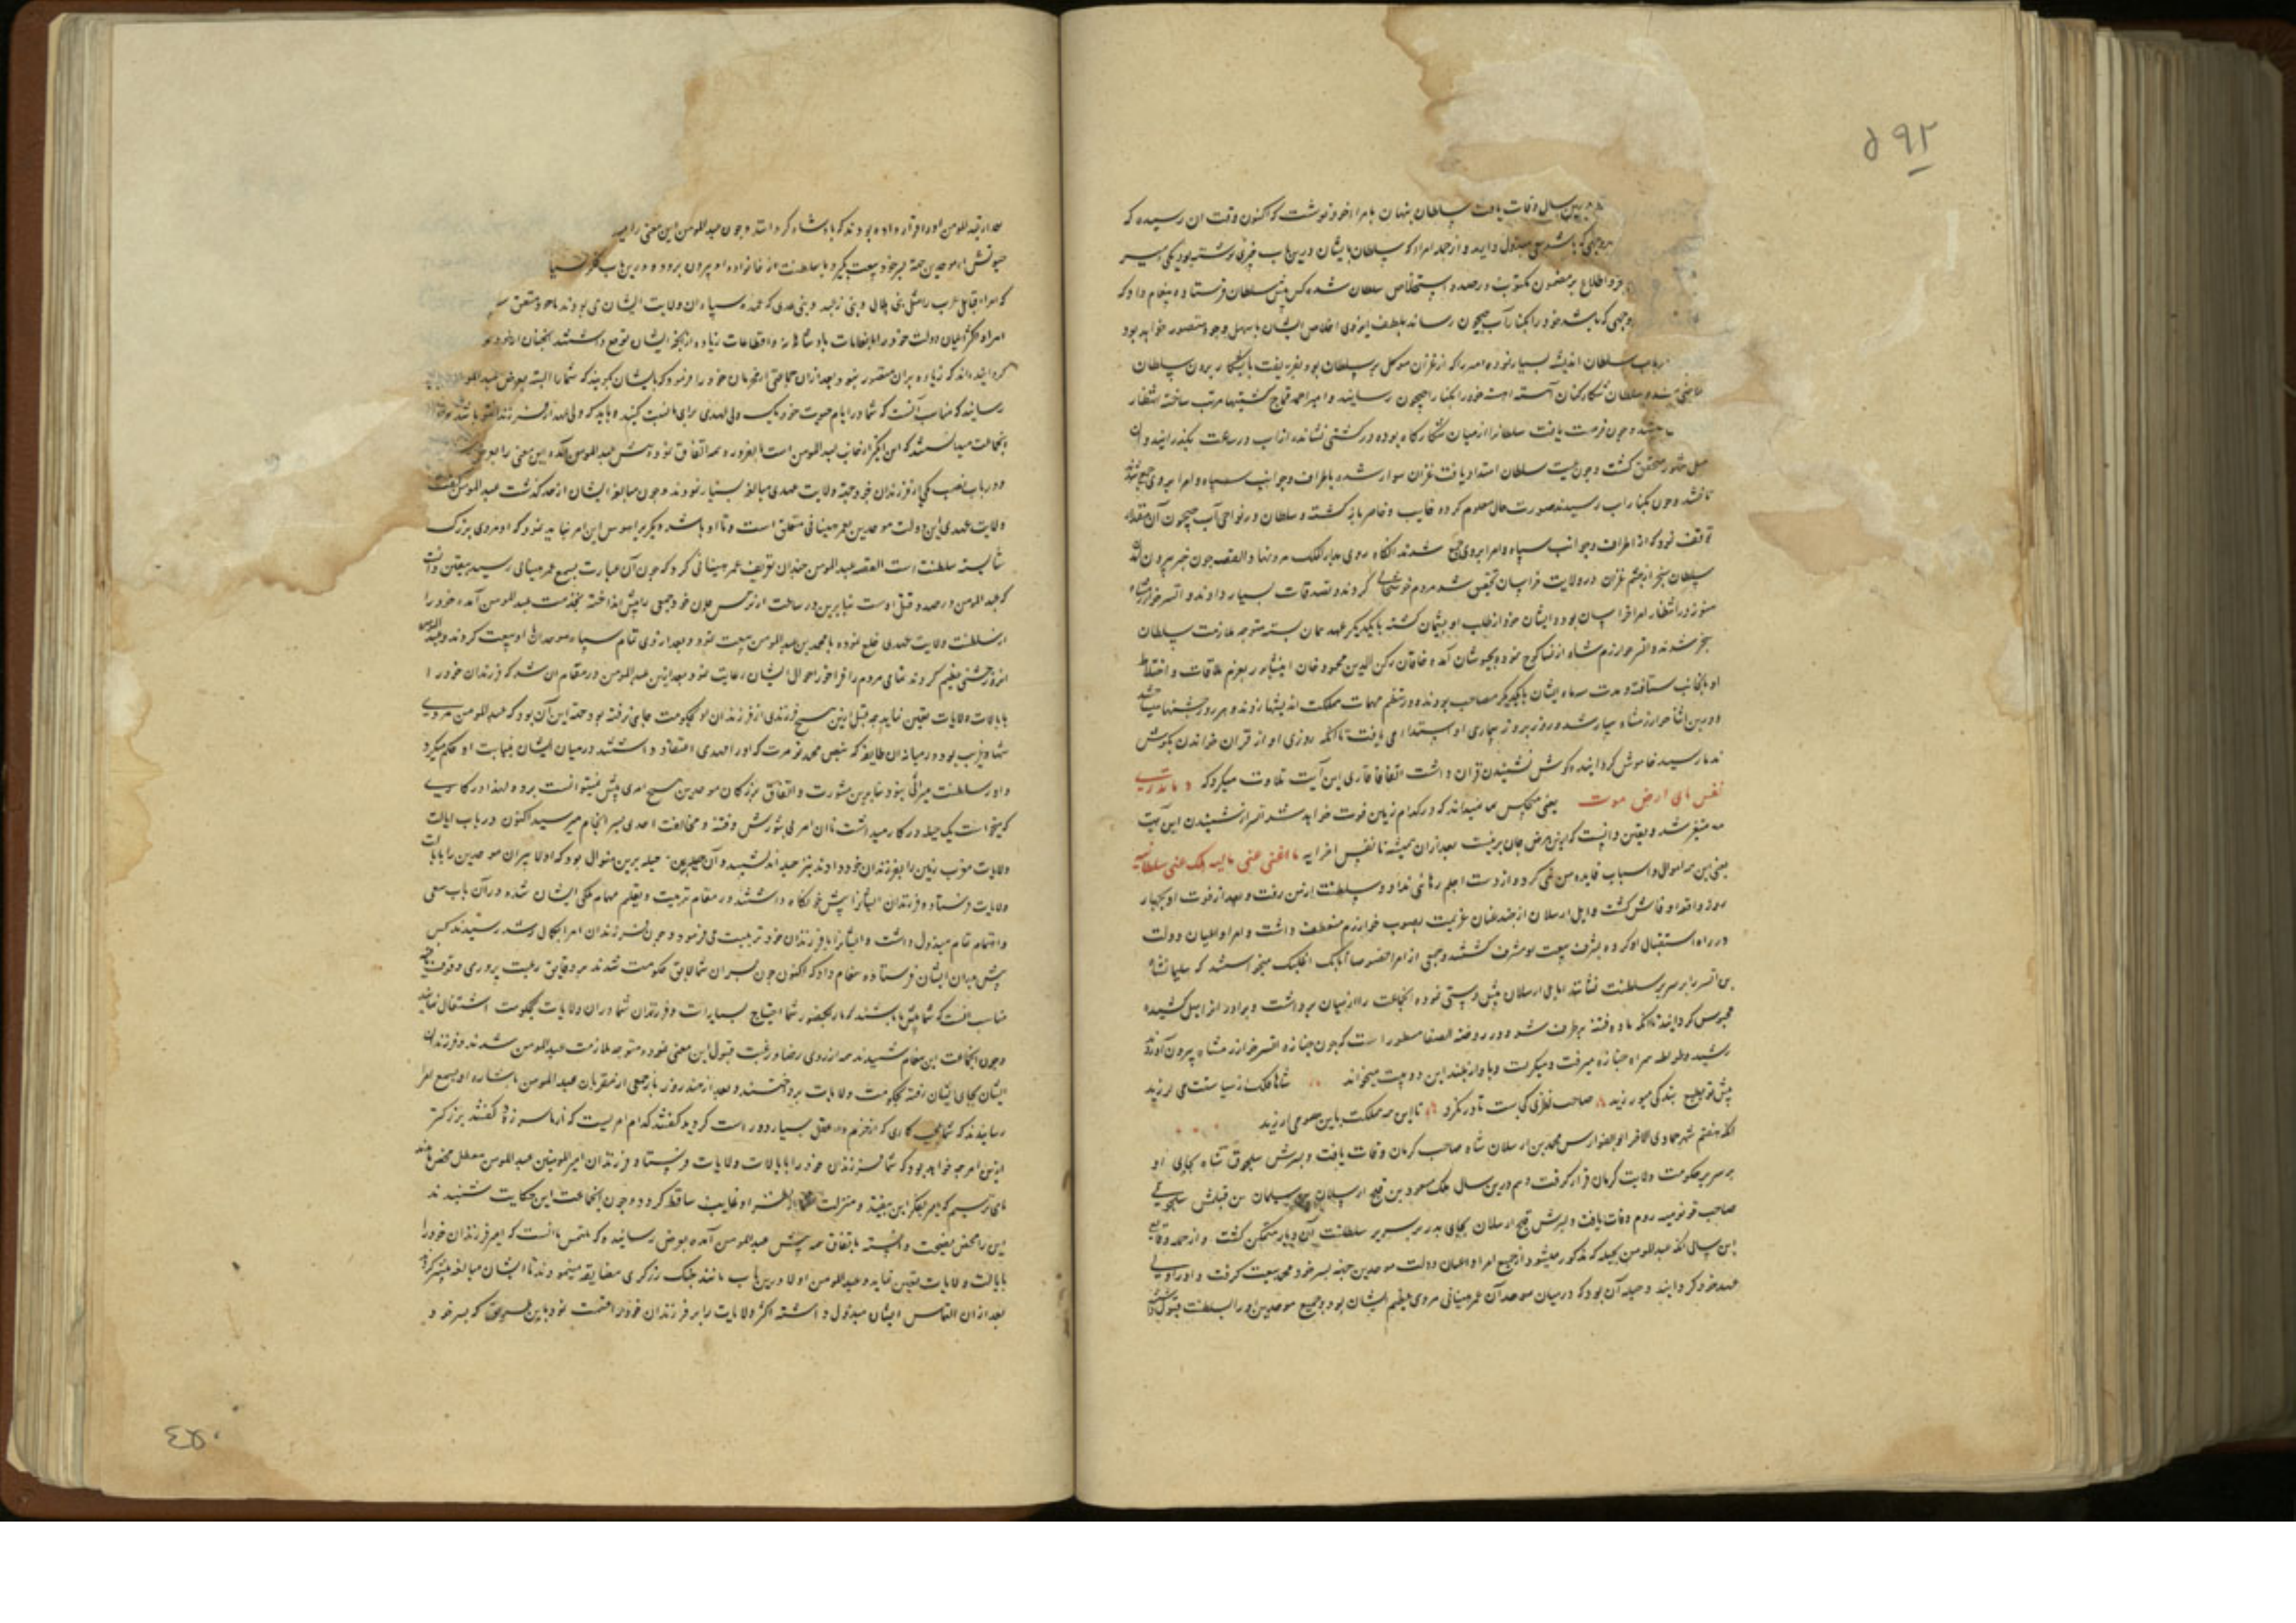 ۵۹۲
سال وفات یافت سلطان پنهان بامراء خود نوشت که اکنون وقت ان رسیده که
مبذول دارید و از جمله امراء که سلطان بایشان درین باب چیزی نوشته بود یکی
اطلاع بر مضمون مکتوب در صدد استخلاص سلطان شده کس پیش سلطان فرستاده پیغام داد که
که باشد خود را بکنار آب جیحون رساند بلطف ایزدی اخلاص ایشان باسهل وجوه متصور خواهد بود
سلطان اندیشه بسیار نموده امیر را که از غزان موکل بر سلطان بود بفریفت بیرون سلطان
سلطان شکار کنان آهسته آهسته خود را بکنار جیحون رسانید و امیر احمد قماج کشتیها مرتب ساخته انتظار
و چون فرصت یافت سلطانرا از میان شکارگاه ربوده در کشتی نشانده از آب در ساعت بگذرانید و
محقق گشت و چون غیبت سلطان امتداد یافت غزان سوار شده باطراف و جوانب
و چون بکنار آب رسیدند صورت حال معلوم کرده خایب و خاسر باز گشته و سلطان در نواحی آب جیحون آن مقدار
توقف نمود که از اطراف و جوانب سپاه و امرا بروی جمع شدند آنگاه روی بدار الملک مرو نهاد القصه چون خبر بیرون
سلطان سنجر از چشم غزان در ولایت خراسان تحقیق شد مردم خوشحالی کردند و تصدقات بسیار دادند و اتسز خوارزمشاه
هنوز در انتظار امراء خراسان بود و ایشان خود از طلب او پشیمان گشته با یکدیگر عهد و پیمان بسته متوجه ملازمت سلطان
سنجر شدند و اتسز خوارزم شاه از نسا کوچ نموده بخبوشان آمد و خاقان رکن الدین محمود خان از نیشابور بعزم ملاقات و اختلاط
او بآنجانب شتافته و مدت سه ماه ایشان با یکدیگر مصاحب بودند و در نظم مهمات مملکت اندیشها
و درین اثنا خوارزمشاه بیمار شد و روز بروز بیماری او اشتداد می یافت تا آنکه روزی او از قران خواندن بگوش
رسید خاموش گردانیده گوش بشنیدن قران داشت اتفاقا قاری این آیت تلاوت میکرد که و ما تدری
نفس بای ارض تموت یعنی هیچکس نمیداند که در کدام زمین فوت خواهد شد اتسز از شنیدن این آیت
متغیر شد و یقین دانست که ازین مرض جان بر نیست بعد از آن همیشه تا نفس اخر آیه ما اغنی عنی مالیه هلک عنی سلطانیه
یعنی این همه اموال و اسباب فایده من نمی کرد و از دست اجلم رهائی نداد و سلطنت از من رفت و بعد از فوت او بچهار
روز واقعه او فاش گشت و ایل ارسلان از جند عنان عزیمت بصوب خوارزم منعطف داشت و امرا و اعیان دولت
در راه استقبال او کرده بشرف بیعت او مشرف گشتند و جمعی از امرا خصوصا اتابک اغلبک میخواستند که سلیمانشاه
بن اتسز را بر سریر سلطنت نشانند ایل ارسلان پیش دستی نموده آنجماعت را از میان برداشت و برادر را
محبوس گردانید تا آنکه ماده فتنه برطرف شد و در روضه الصفا مسطور است که چون جنازه اتسز خوارزمشاه بیرون آوردند
رشید وطواط همراه جنازه میرفت و میگریست و باواز بلند این دو بیت میخواند شاها فلک از سیاستت می لرزید
پیش تو بطبع بندگی میورزید صاحب نظری کجاست تا در نگرد تا این همه مملکت باین می ارزید
آنکه هفتم شهر جمادی الاخر ابوالفوارس محمد بن ارسلان شاه صاحب کرمان وفات یافت و پسرش سلجوق شاه بجای او
بر سریر حکومت ولایت کرمان قرار گرفت و هم درین سال ملک مسعود بن قلج ارسلان بن سلیمان بن قتلمش سلجوقی
صاحب قونیه روم وفات یافت و پسرش قلج ارسلان بجای پدر بر سریر سلطنت آن دیار متمکن گشت و از جمله وقایع
این سال آنکه عبدالمومن بحیله که مذکور میشود از جمیع امرا و اعیان دولت موحدین جهة پسر خود محمد بیعت گرفت و او را ولی
عهد خود گردانید و حیله آن بود که در میان موحدان عمر هنتانی مردی عظیم الشان بود و جمیع موحدین او را بسلطنت قبول
بعد از عبدالمومن او را قرار داده بودند که پادشاه گردانند و چون عبدالمومن این معنی را
جهة پسر خود بیعت بگیرد تا سلطنت از خانواده او بیرون نرود و درین باب فکر
که امراء قبایل عرب را مثل بنی هلال و بنی زغبه و بنی عدی که عمده سپاه ان ولایت ایشان می بودند با خود متفق
امراء و اکثر اعیان دولت خود را بانعامات پادشاهانه و اقطاعات زیاده از آنچه ایشان توقع داشتند
گردانید که زیاده بر ان متصور نبود و بعد از ان جماعتی از محرمان خود را فرمود که بایشان گویند که شما را البته بعرض عبدالمومن
رسانید که مناسب آنست که شما در ایام حیوت خود یک ولی عهدی برای ما نصب کنید و باید که ولی عهد از فرزندان تو باشد
آنجماعت میدانستند که این انگیز از جانب عبدالمومن است بالضروره همه اتفاق نموده پیش عبدالمومن آمده این معنی را
و در باب نصب یکی از فرزندان خود جهة ولایت عهدی مبالغه بسیار نمودند و چون مبالغه ایشان از حد گذشت عبدالمومن گفت
ولایت عهدی این دولت موحدین بعمر هنتانی متعلق است و تا او باشد دیگری پیرامون این امر نباید نمود که او مردی بزرگ
شایسته سلطنت است القصه عبدالمومن چندان تعریف عمر هنتانی کرد که چون آن عبارت بسمع عمر هنتانی رسید بیقین دانست
که عبدالمومن در صدد قتل اوست بنابرین در ساعت از ترس جان خود جمعی را پیش انداخته بخدمت عبدالمومن آمد و خود را
از سلطنت ولایت عهدی خلع نموده با محمد بن عبدالمومن بیعت نمود و بعد از وی تمام سپاه موحدان با او بیعت کردند و عبدالمومن
انروز جشنی عظیم کردند تمامی مردم را فراخور احوال ایشان رعایت نمود بعد ازین عبدالمومن در مقام ان شد که فرزندان خود را
بایالات ولایات تعیین نماید چه قبل ازین هیچ فرزندی از فرزندان او بحکومت جایی نرفته بود جهة این آن بود که عبدالمومن مردی
بود در میانه ان طایفه که بنص محمد تومرت که او را مهدی اعتقاد داشتند در میان ایشان بنیابت او حکم میکرد
و او را سلطنت میراثی نبود بنابرین بی مشورت و اتفاق بزرگان موحدین هیچ امری پیش نمیتوانست برد و لهذا در کاری
که میخواست یک حیله در کار میداشت تا ان امر بی شورش و فتنه و مخالفت احدی بسر انجام میرسید اکنون در باب ایالت
ولایات مغرب زمین را بفرزندان خود دادند نیز حیله اندیشید و آن حیله برین منوال بود که اولا پسران موحدین را بایالت
ولایات فرستاده فرزندان ایشانرا پیش خود نگاه داشتند در مقام تربیت و تعلیم مهام ملکی ایشان شده در آن باب سعی
و اهتمام تمام مبذول داشت و ایشانرا با فرزندان خود تربیت می فرمود و چون فرزندان امرا بکمال رشد رسیدند کس
پیش پدران ایشان فرستاده پیغام داد که اکنون چون پسران شما لایق حکومت شدند بر دقایق رعیت پروری وقوف
مناسب آنست که شما پیش ما باشید که ما را بحضور شما احتیاج بسیار است و فرزندان شما در ان ولایات بحکومت اشتغال نمایند
و چون آنجماعت این پیغام شنیدند همه از روی رضا و رغبت قبول این معنی نموده متوجه ملازمت عبدالمومن شدند و فرزندان
ایشان بجای ایشان رفته بحکومت ولایات پرداختند و بعد از چند روز باز جمعی از مقربان عبدالمومن باشاره او بسمع امرا
رسانیدند که شما عجب کاری که از حزم و عقل بسیار دور است کردید گفتند کدام امریست که از ما سر زد گفتند بزرگتر
ازین امر چه خواهد بود که شما فرزندان خود را بایالات ولایات فرستاد و فرزندان امیرالمومنین عبدالمومن معطل محض
می ترسیم که امیر بفکر این بیفتد و منزلت شما از نظر او بغایت ساقط گردد و چون آنجماعت این حکایت شنیدند
این را محض نصیحت دانسته باتفاق همه پیش عبدالمومن آمده بعرض رسانیدند که ملتمس ما آنست که امیر فرزندان خود را
بایالت ولایات تعیین نماید و عبدالمومن اولا درین باب مانند جنگ زرگری مضایقه مینمودند تا ایشان مبالغه بیشتر کردند
بعد از ان التماس ایشان مبذول داشته اکثر ولایت را بر فرزندان خود قسمت نمود باین طریق که پسر خود